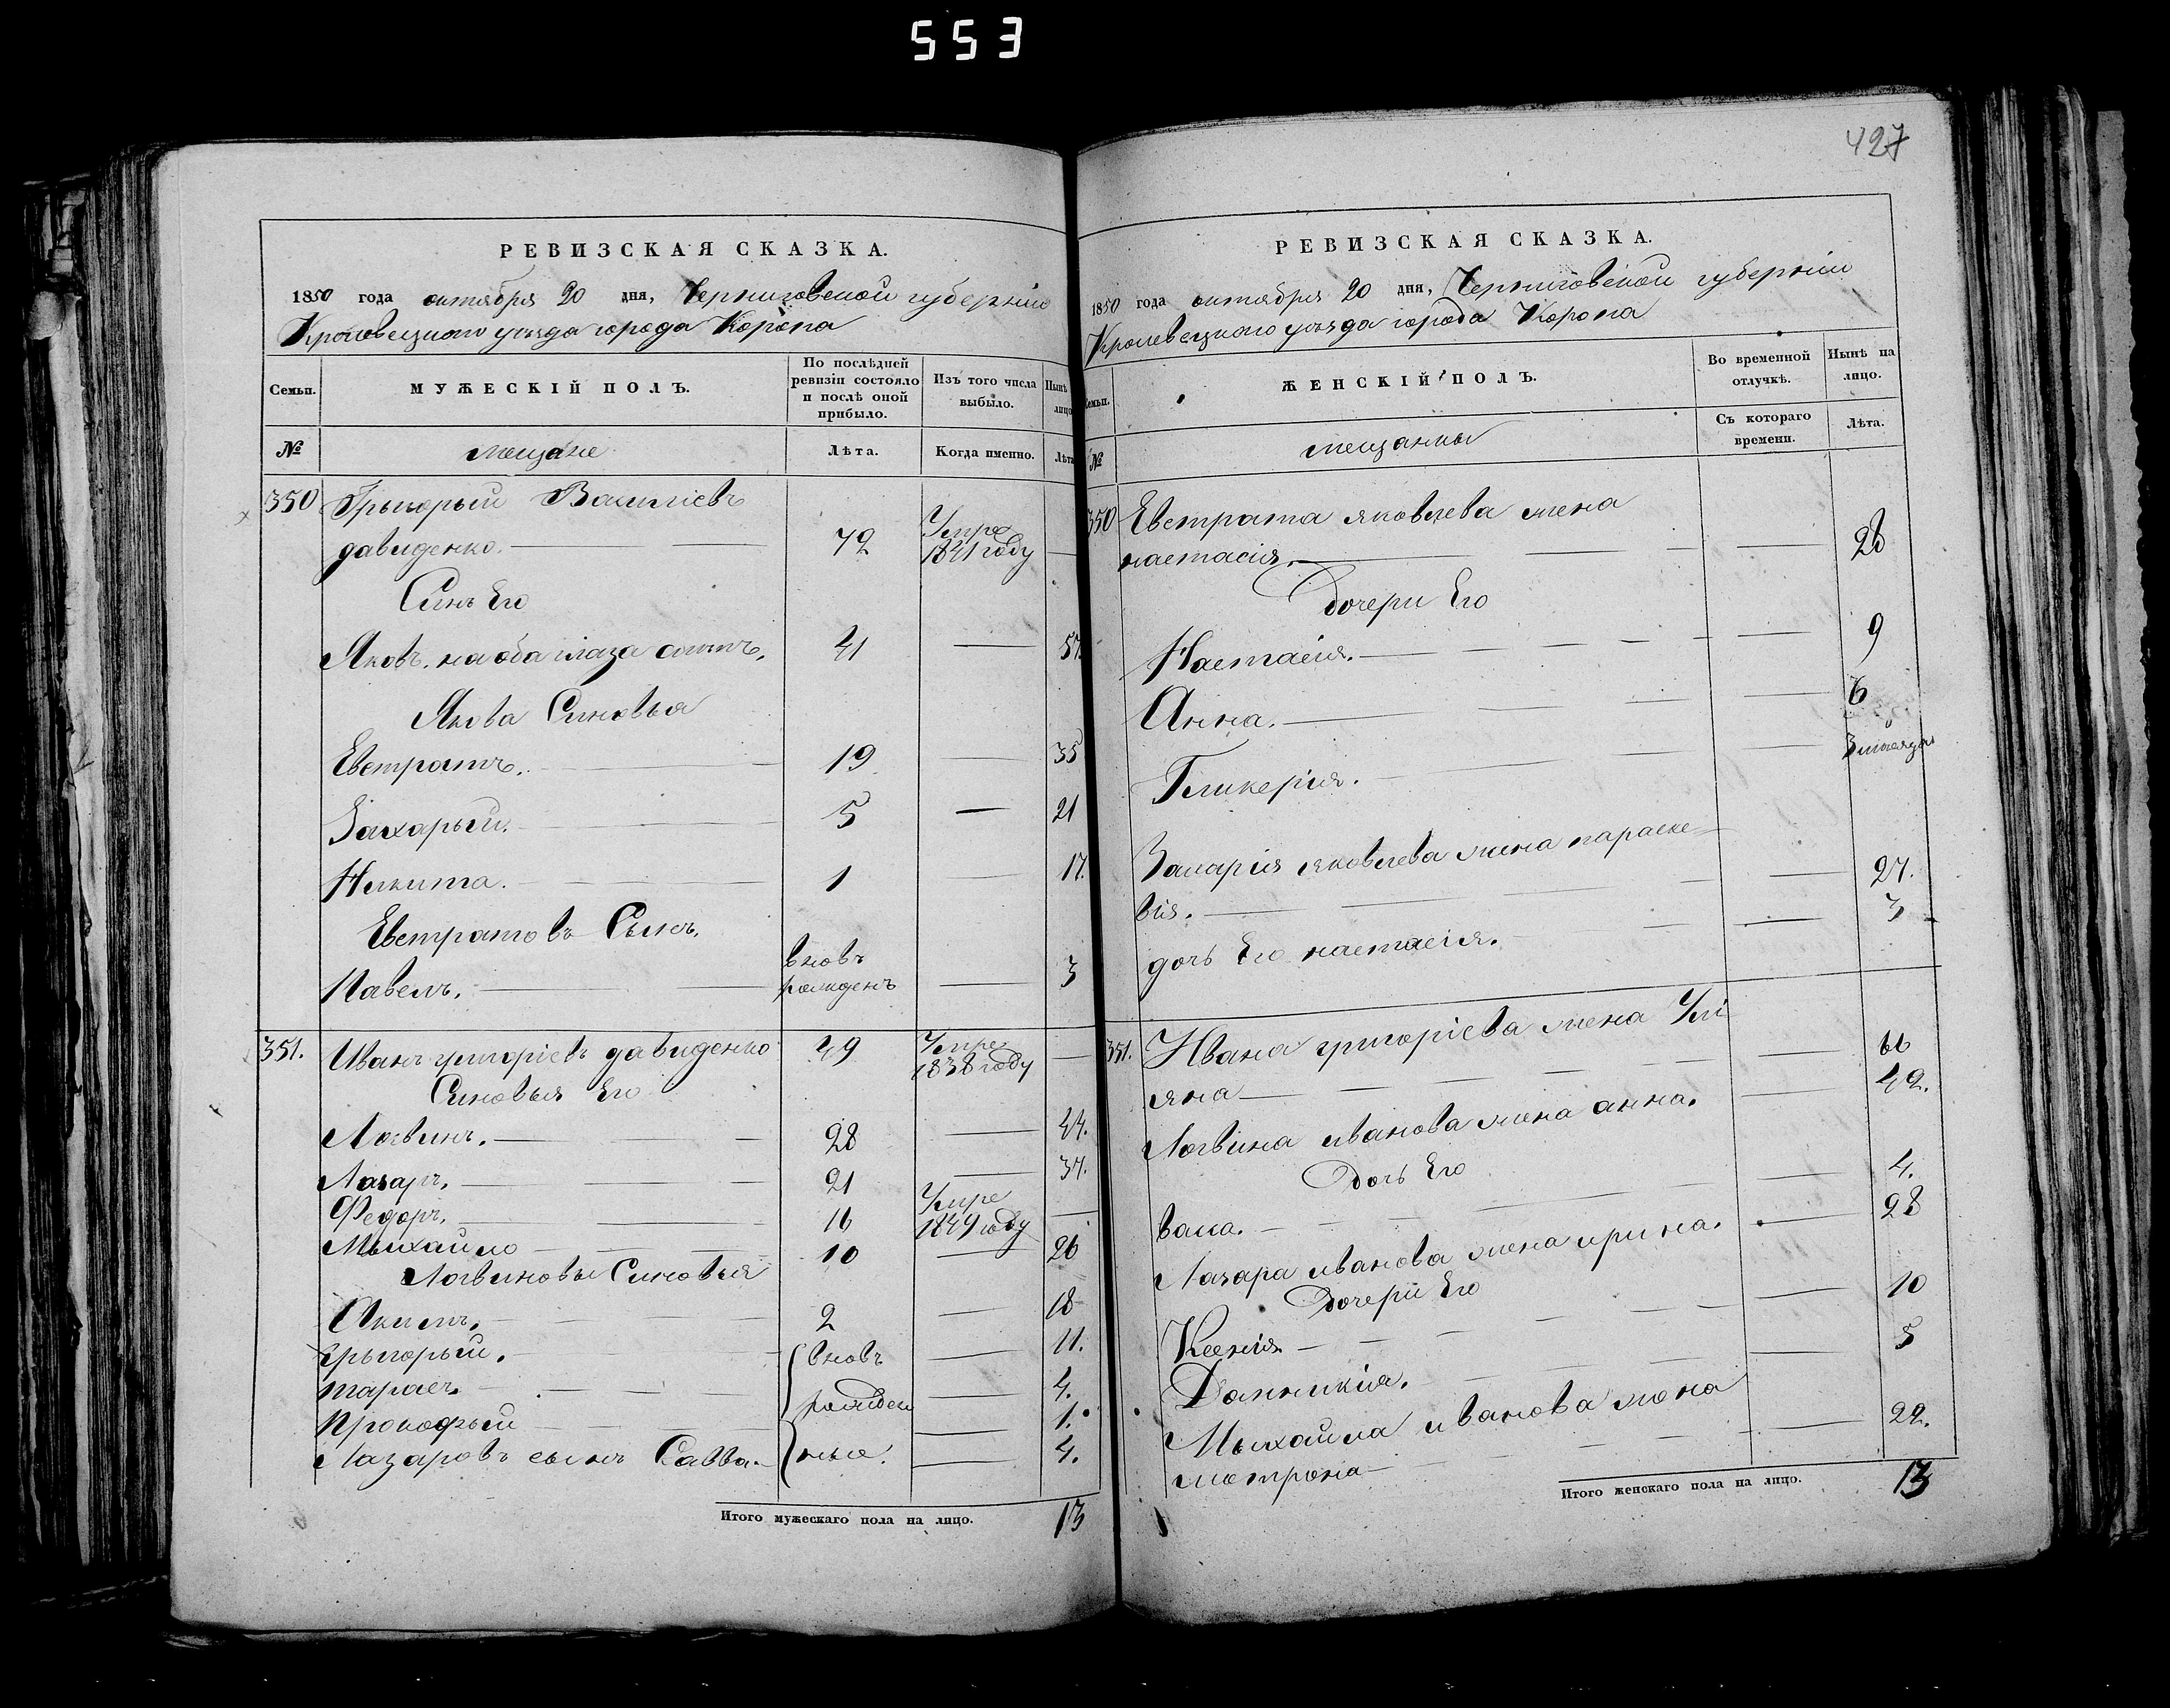 553
427
РЕВИЗСКАЯ СКАЗКА.
1850 года октября 20 дня, Черниговской губернии
Кролевецкого уезда города Коропа
Семьи.
МУЖЕСКІЙ ПОЛЪ.
По послѣдней ревизіи состояло и послѣ оной прибыло.
Изъ того числа выбыло.
Нынѣ лицо
№
мещане
Лѣта.
Когда именно.
Лѣта
350 Грыгорый Василіевъ
давиденко. 72 Умре 1841 году
Синъ Его
Яковъ. на оба глаза слепъ. 41 57.
Якова Синовья
Евстратъ. 19 35
Захарый. 5 21
Никита. 1 17.
Евстратовъ Сынъ.
Павелъ. вновь рожденъ 3
351. Иванъ григоріевъ давиденко 49 Умре 1838 году
Синовья Его
Логвинъ. 28 44.
Лазаръ. 21 37.
Федоръ. 16 Умре 1849 году
Мыхайло 10 26
Логвиновы Синовья
Акимъ. 2 18
Грыгорый. вновь 11.
тарасъ. рожден 4.
Прокофый ные. 1.
Лазаровъ сынъ Савва. 4.
Итого мужескаго пола на лицо. 13
РЕВИЗСКАЯ СКАЗКА.
1850 года октября 20 дня, Черниговской губерніи
Кролевецкого уезда города Коропа
Семьи.
ЖЕНСКІЙ ПОЛЪ.
Во временной отлучкѣ.
Нынѣ на лицо.
№
мещанки
Съ котораго времени.
Лѣта.
350 Евстрата яковлева жена
настасія. 28
Дочери Его
Настасія. 9
Анна. 6
Гликерия. 3 месяца
Захарія яковлева жена параске=
вія. 27.
дочь Его настасія. 3
351. Ивана григоріева жена Улі
яна 66
Логвина иванова жена анна. 42.
Дочь Его
васа. 4.
Лазара иванова жена ирина. 28
Дочери Его
Ксенія 10
Домникія. 5
Мыхайла иванова жена
мотрона 22.
Итого женскаго пола на лицо. 13